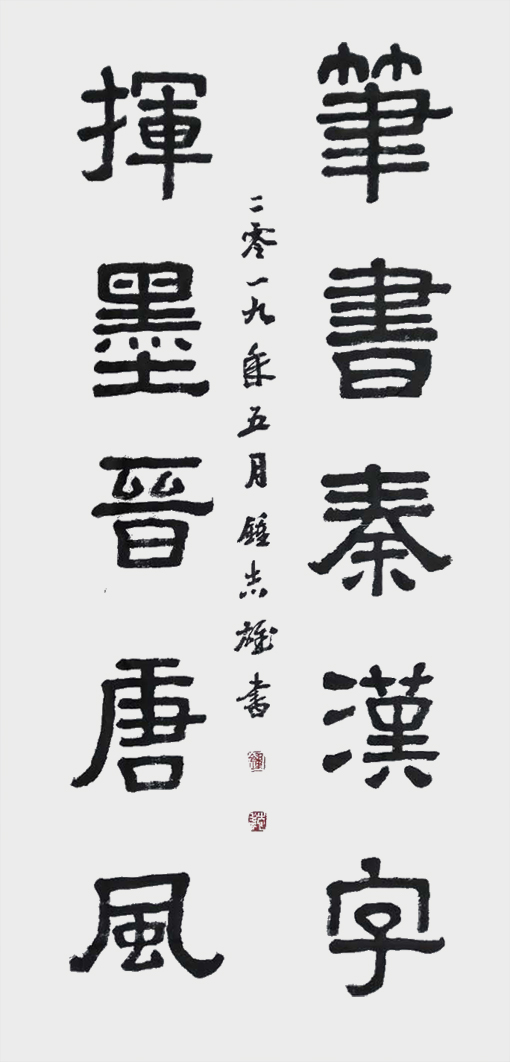 筆書秦漢字
揮墨晉唐風
二零一九年五月鍾志雄書